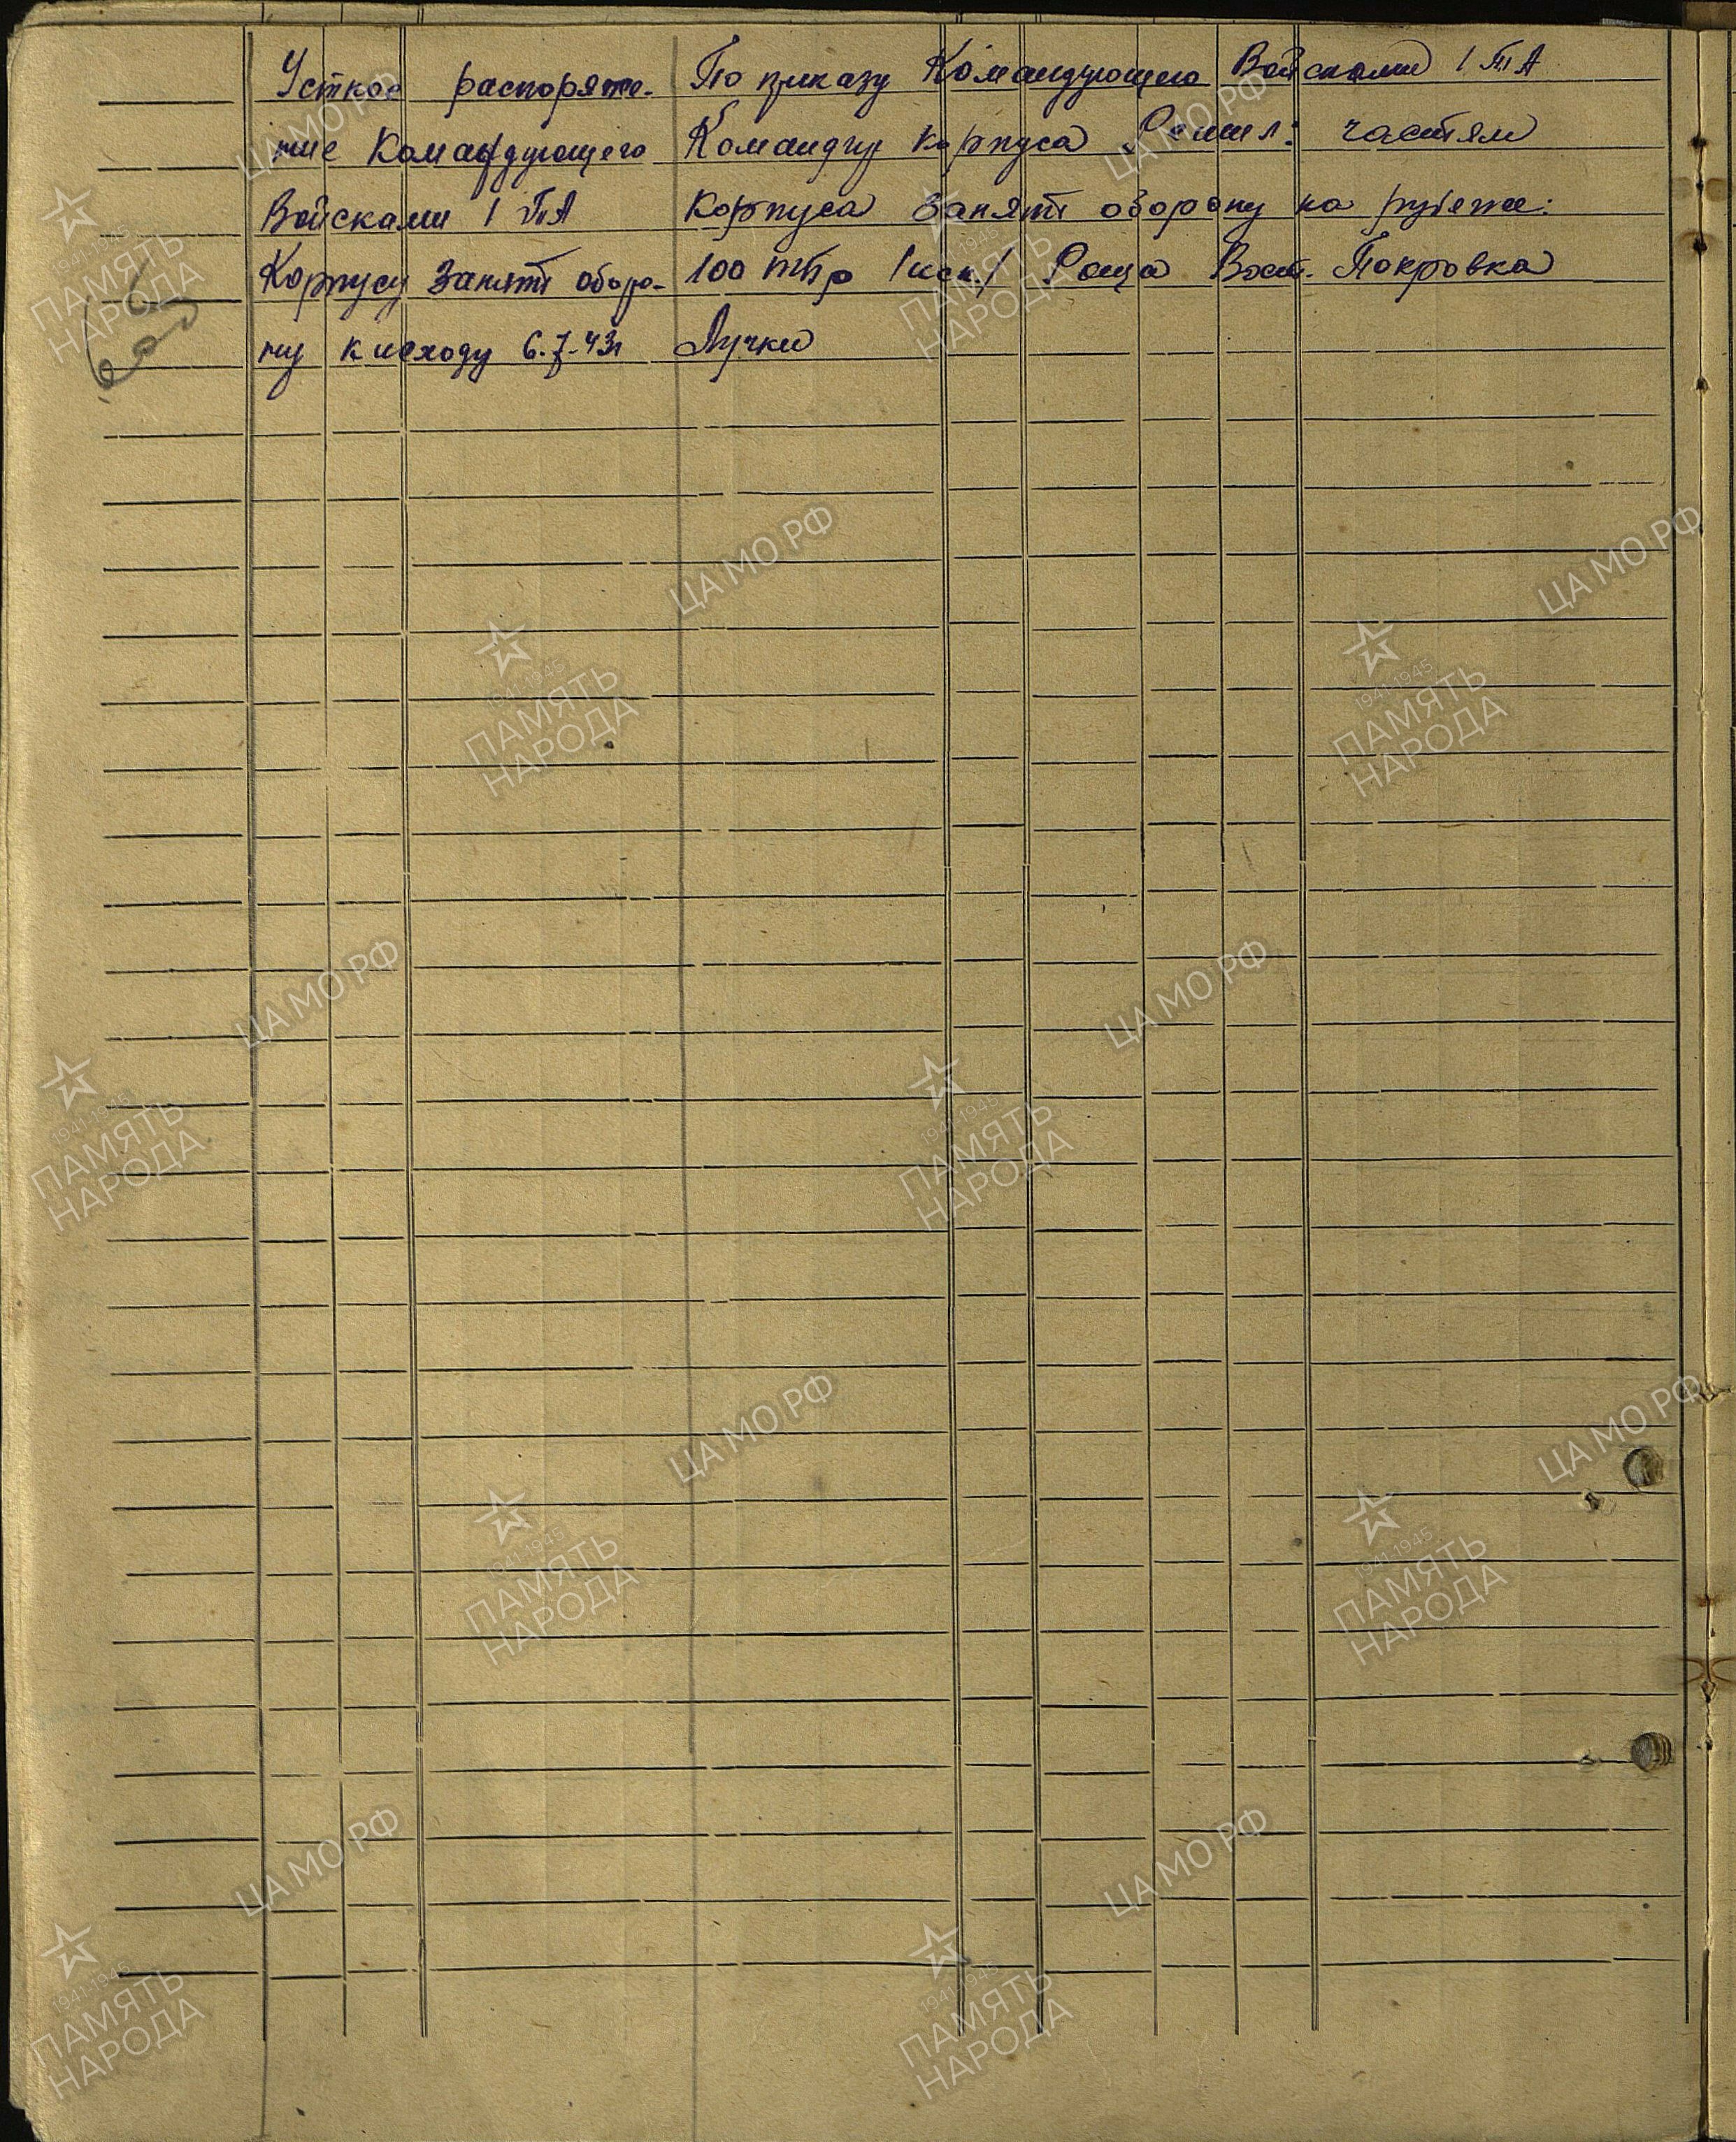 Устное распоряже-
ние Командующего
Войсками 1 ТА
Корпусу Занять оборо-
ну к исходу 6.7.43г
По приказу Командующего Войсками 1 ТА
Командир корпуса Решил: частям
Корпуса Занять оборону на рубеже:
100 тбр /иск./ Роща Вост. Покровка
Лучки
ЦА МО РФ
1941-1945
ПАМЯТЬ
НАРОДА